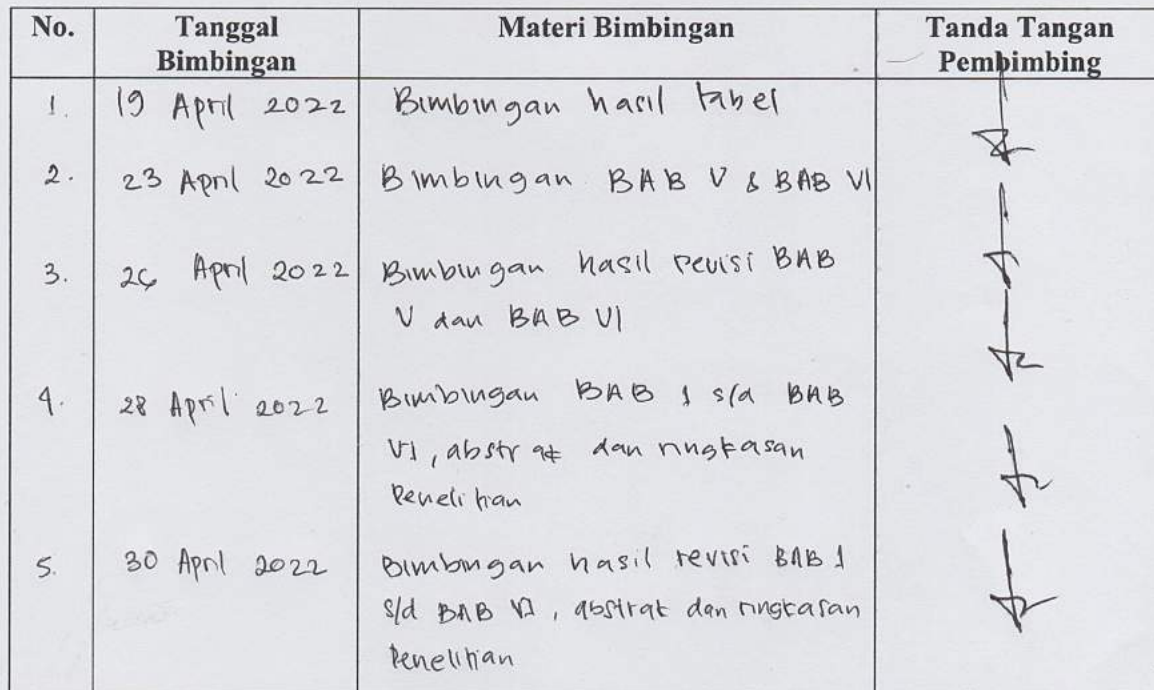 No. Tanggal Bimbingan Materi Bimbingan Tanda Tangan Pembimbing
1. 19 April 2022 Bimbingan hasil tabel
2. 23 April 2022 Bimbingan BAB V & BAB VI
3. 26 April 2022 Bimbingan hasil revisi BAB
V dan BAB VI
4. 28 April 2022 Bimbingan BAB 1 s/d BAB
VI, abstrak dan ringkasan
Penelitian
5. 30 April 2022 Bimbingan hasil revisi BAB 1
s/d BAB VI, abstrak dan ringkasan
Penelitian